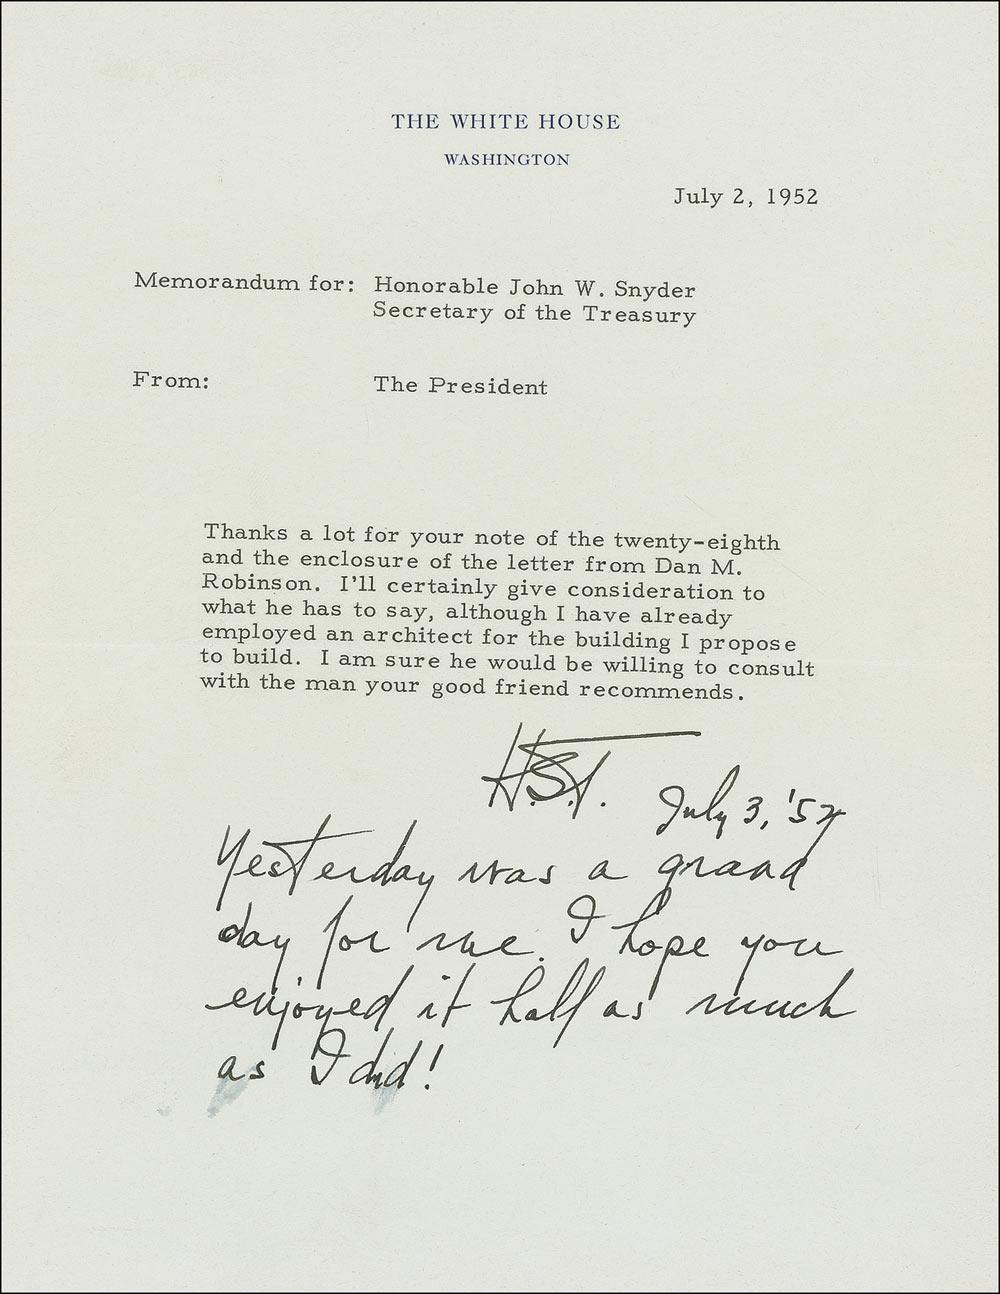 THE WHITE HOUSE
WASHINGTON
July 2, 1952
Memorandum for: Honorable John W. Snyder
Secretary of the Treasury
From: The President
Thanks a lot for your note of the twenty-eighth
and the enclosure of the letter from Dan M.
Robinson. I'll certainly give consideration to
what he has to say, although I have already
employed an architect for the building I propose
to build. I am sure he would be willing to consult
with the man your good friend recommends.
H.S.T.
July 3, '52
Yesterday was a grand
day for me. I hope you
enjoyed it half as much
as I did!